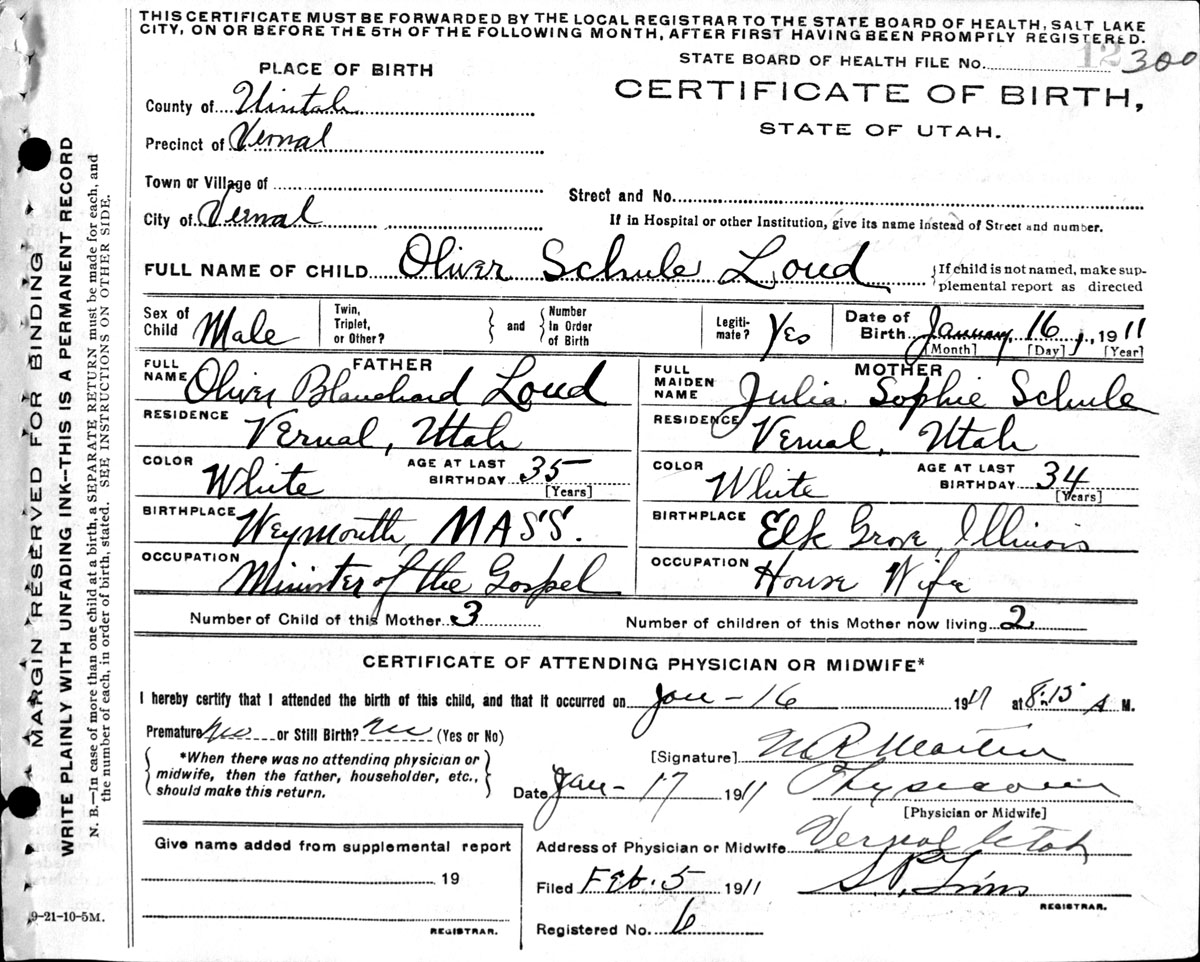 THIS CERTIFICATE MUST BE FORWARDED BY THE LOCAL REGISTRAR TO THE STATE BOARD OF HEALTH, SALT LAKE
CITY, ON OR BEFORE THE 5TH OF THE FOLLOWING MONTH, AFTER FIRST HAVING BEEN PROMPTLY REGISTERED.
STATE BOARD OF HEALTH FILE No. 12 300
PLACE OF BIRTH
CERTIFICATE OF BIRTH,
STATE OF UTAH.
County of Uintah
Precinct of Vernal
Town or Village of
Street and No.
City of Vernal
If in Hospital or other Institution, give its name instead of Street and number.
FULL NAME OF CHILD Oliver Schule Loud
{If child is not named, make sup-
plemental report as directed
Sex of Child Male
Twin, Triplet, or Other?
and
Number In Order of Birth
Legiti-mate? Yes
Date of Birth January 16, 1911
[Month] [Day] [Year]
FATHER
FULL NAME Oliver Blanchard Loud
RESIDENCE Vernal, Utah
COLOR White AGE AT LAST BIRTHDAY 35
[Years]
BIRTHPLACE Weymouth, MASS.
OCCUPATION Minister of the Gospel
MOTHER
FULL MAIDEN NAME Julia Sophie Schule
RESIDENCE Vernal, Utah
COLOR White AGE AT LAST BIRTHDAY 34
[Years]
BIRTHPLACE Elk Grove, Illinois
OCCUPATION House Wife
Number of Child of this Mother 3
Number of children of this Mother now living 2
CERTIFICATE OF ATTENDING PHYSICIAN OR MIDWIFE*
I hereby certify that I attended the birth of this child, and that it occurred on Jan - 16 1911 at 8:15 A M.
Premature No or Still Birth? No (Yes or No)
*When there was no attending physician or
midwife, then the father, householder, etc.,
should make this return.
[Signature] Martin
Date Jan - 17 1911 Physician
[Physician or Midwife]
Address of Physician or Midwife Vernal Utah
Filed Feb. 5 1911
REGISTRAR.
Registered No. 6
Give name added from supplemental report
19
REGISTRAR.
9-21-10-5M.
MARGIN RESERVED FOR BINDING
WRITE PLAINLY WITH UNFADING INK--THIS IS A PERMANENT RECORD
N. B.--In case of more than one child at a birth, a SEPARATE RETURN must be made for each, and
the number of each, in order of birth, stated. SEE INSTRUCTIONS ON OTHER SIDE.